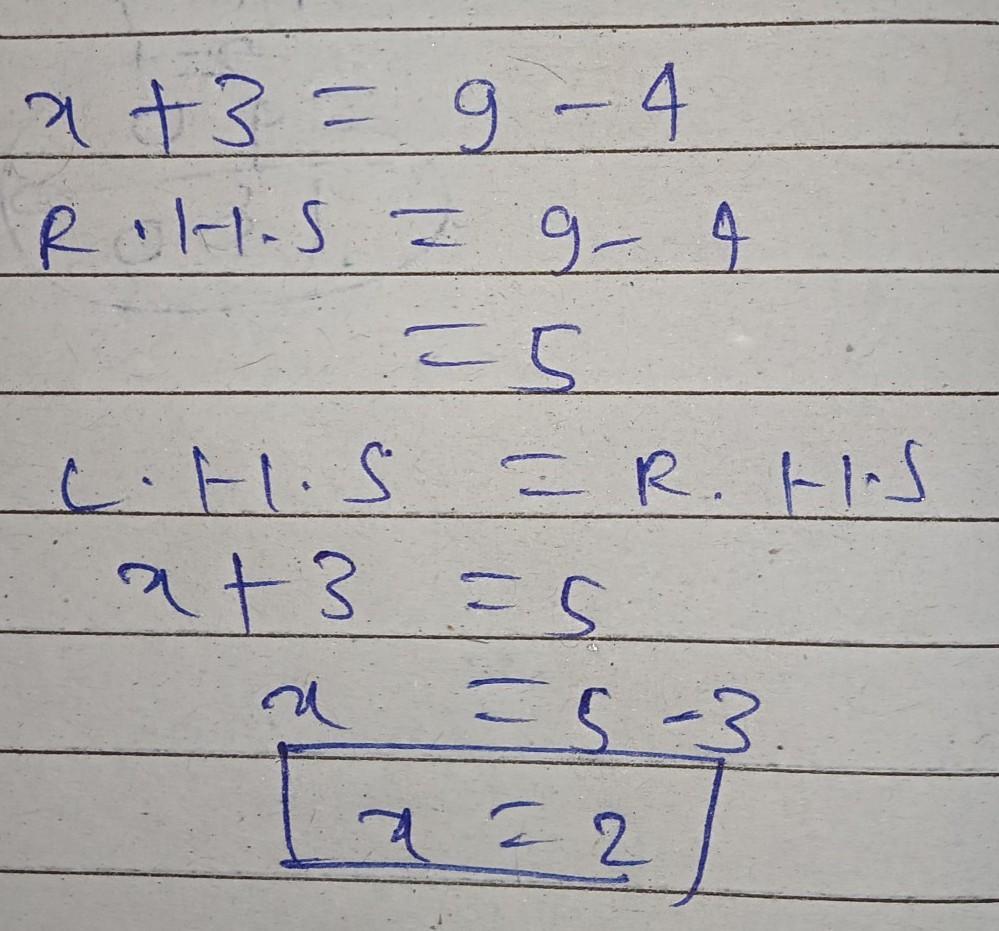 x + 3 = 9 - 4
R.H.S = 9 - 4
= 5
L.H.S = R.H.S
x + 3 = 5
x = 5 - 3
x = 2